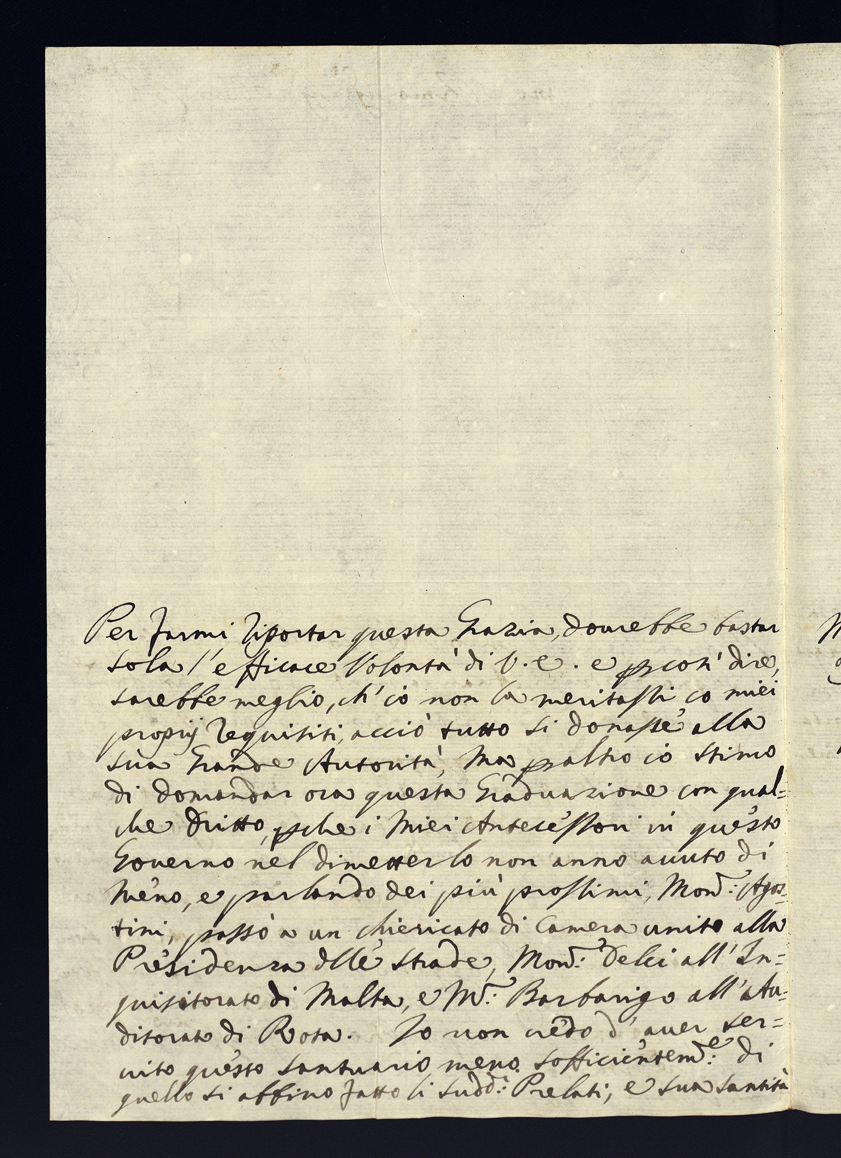 Per farmi riportar questa Grazia, dovrebbe bastar
sola l'efficace Volontà di V. E. e p così dire,
sarebbe meglio, ch'io non la meritassi co miei
proprij requisiti, acciò tutto si donasse alla
sua Grande Autorità, Ma p altro io stimo
di domandar ora questa Graduazione con qual=
che dritto, pche i Miei Antecessori in questo
Governo nel dimetterlo non anno avuto di
meno, e parlando dei più prossimi, Mon.r Agos=
tini, passò a un chiericato di Camera unito alla
Presidenza dlle Strade, Mon.r Delci all'In=
quisitorato di Malta, e M.r Barbarigo all'Au=
ditorato di Rota. Io non credo d'aver ser=
vito questo santuario meno sofficientem.e di
quello si abbino fatto li sudd.i Prelati, e sua santità